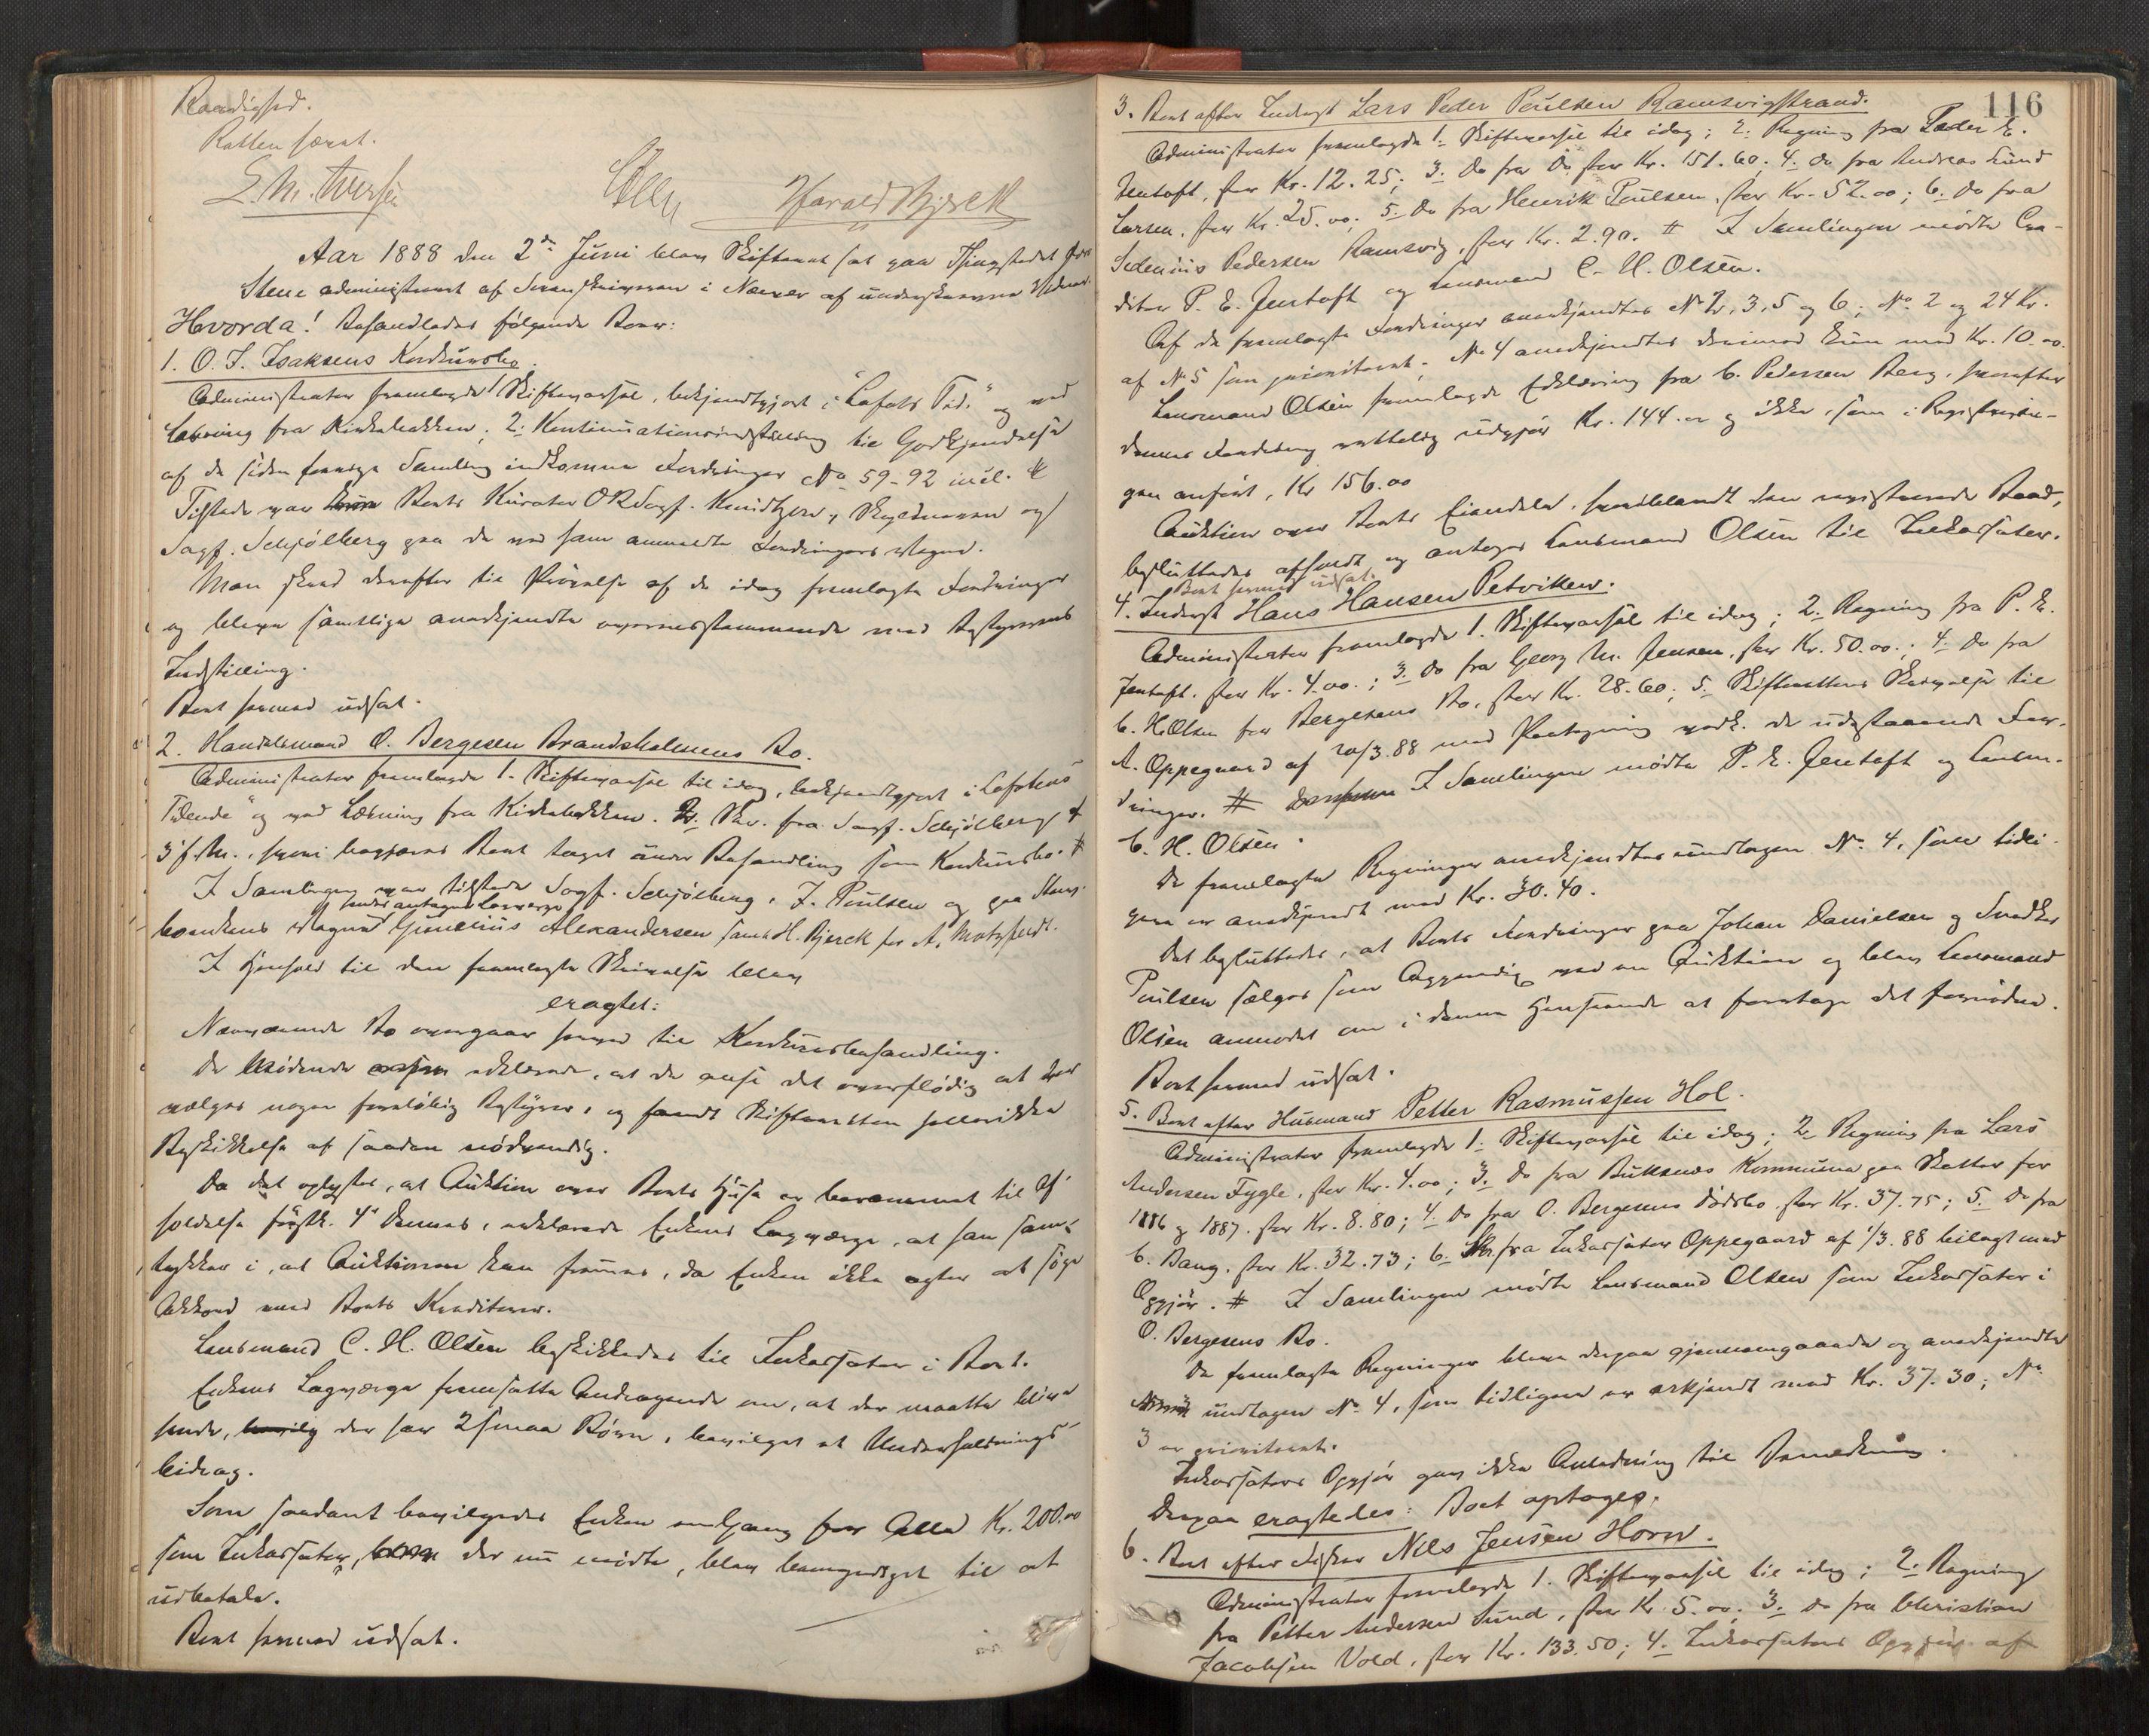 Raadighed.
Retten hævet.
E. M. Iversen
COlsen Harald Bjerck
Aar 1888 den 2den Juni blev Skifteret sat paa Thingstedet
Stene administreret af Sorenskriveren i Nærvær af underskrevne Vidner.
Hvorda! Behandledes følgende Boer:
1. O. J. Isaksens Konkursbo.
Administrator fremlagde 1 Skiftevarsel, bekjendtgjort i "Lofots Tid." og ved
Læsning fra Kirkebakken; 2. Kontinuationsindstilling til Godkjendelse
af de siden forrige Samling indkomne Fordringer No 59-92 incl. #
Tilstede var Boets Kurator ORSagf. Knudtzon, Skyldneren og
Sagf. Schjölberg paa de ved ham anmeldte Fordringers Vegne.
Man skred derefter til Prövelse af de idag fremlagte Fordringer
og bleve samtlige anerkjendte overensstemmende med Bestyrerens
Indstilling.
Boet hermed udsat.
2. Handelsmand O. Bergesen Brandsholmens Bo.
Administrator fremlagde 1. Skiftevarsel til idag, bekjendtgjort i "Lofotens
Tidende" og ved Læsning fra Kirkebakken. 2. Skr. fra Sagf. Schjölberg af
3 f. M., hvori begjæres Boet taget under Behandling som Konkursbo. #
I Samlingen var tilstede Sagf. Schjölberg, J. Poulsen og paa Stervboenkens
hendes antagne Laugværge
boenkens Vegne Gunerius Alexandersen samt H. Bjerck for A. Motzfeldt.
I Henhold til den fremlagte Skrivelse blev
eragtet:
Nærværende Bo overgaar herved til Konkursbehandling.
De Mödende erklærede, at de anse det overflödig at der
vælges nogen forelöbig Bestyrer, og fandt Skifteretten hellerikke
Beskikkelse af saadan nödvendig.
Da det oplystes, at Auktion over Boets Huse er berammet til Afholdelse
förstk. 4de dennes, erklærede Enkens Lagværge, at han samtykker
i, at Auktionen kan fremmes, da Enken ikke agter at söge
Akkord med Boets Kreditorer.
Lensmand C. H. Olsen beskikkedes til Inkassator i Boet.
Enkens Lagværge fremsatte Andragende om, at der maatte blive
hende, der har 2 smaa Börn, bevilget et Underholdnings
bidrag.
Som saadant bevilgedes Enken engang for Alle Kr. 200.00
som Inkassator, der nu mödte, blev bemyndiget til at
udbetale.
Boet hermed udsat.
116
3. Boet efter Inderst Lars Peder Poulsen Ramsvigstrand.
Administrator fremlagde 1. Skiftevarsel til idag; 2. Regning fra Peder E.
Jentoft, stor Kr. 12.25; 3. Do fra Do stor Kr. 151.60. 4. Do fra Andreas Lund
Larsen, stor Kr. 25.00; 5. Do fra Henrik Poulsen, stor Kr. 52.00; 6. Do fra
Sedenius Pedersen Ramsvig, stor Kr. 2.90. # I Samlingen mödte Cre-
ditor P. E. Jentoft og Lensmand C. H. Olsen.
Af de fremlagte Fordringer anerkjendtes No 2, 3, 5 og 6; No 2 og 24 Kr.
af No 5 som prioriteret. No 4 anerkjendtes derimod kun med Kr. 10.00.
Lensmand Olsen fremlagde Erklæring fra C. Pedersen Berg, hvorefter
dennes Fordring rettelig udgjör Kr. 144.00 og ikke, som i Registrerin-
gen anfört, Kr 156.00
Auktion over Boets Eiendele, hvoriblandt den registrerede Baad,
besluttedes afholdt og antoges Lensmand Olsen til Inkassator.
Boet hermed udsat.
4. Inderst Hans Hansen Petvikens.
Administrator fremlagde 1. Skiftevarsel til idag; 2. Regning fra P. E.
Jentoft. stor Kr. 4.00.; 3. Do fra Georg M. Jensen, stor Kr. 50.00.; 4. Do fra
C. H. Olsen for Bergesens Bo, stor Kr. 28.60; 5. Skifterettens Skrivelse til
A. Oppegaard af 20/3.88 med Paategning vedk. de udestaaende For-
dringer. # I Samlingen mödte P. E. Jentoft og Lensm.
C. H. Olsen.
De fremlagte Regninger anerkjendtes undtagen No 4, som tidli-
gere er anerkjendt med Kr. 30.40.
Det besluttedes, at Boets Fordringer paa Johan Danielsen og Snedker
Poulsen sælges som Aggendig ved en Auktion og blev Lensmand
Olsen anmodet om i denne Henseende at foretage det fornödne.
Boet hermed udsat.
5. Boet efter Husmand Petter Rasmussen Hol.
Administrator fremlagde 1. Skiftevarsel til idag; 2. Regning fra Lars
Andersen Fygle, stor Kr. 4.00; 3. Do fra Buksnæs Kommune paa Skatter for
1886 og 1887. stor Kr. 8.80; 4. Do fra O. Bergesens Dödsbo stor Kr. 37.75; 5. Do fra
C. Bang. stor Kr. 32.73; 6. Skr. fra Inkassator Oppegaard af 1/3.88 bilagt med
Opgjör. # I Samlingen mödte Lensmand Olsen som Inkassator i
O. Bergesens Bo.
De fremlagte Regninger bleve derpaa gjennemgaaede og anerkjendte
undtagen No 4, som tidligere er erkjendt med Kr. 37.30; No
3 er prioriteret.
Inkassators Opgjör gav ikke Anledning til Bemerkning.
Derpaa eragtedes: Boet optages.
6. Boet efter Fisker Nils Jensen Horn.
Administrator fremlagde 1. Skiftevarsel til idag; 2. Regning
fra Petter Andersen Sund, stor Kr. 5.00; 3. Do fra Christian
Jacobsen Vold, stor Kr. 133.50; 4. Inkassators Opgjör af